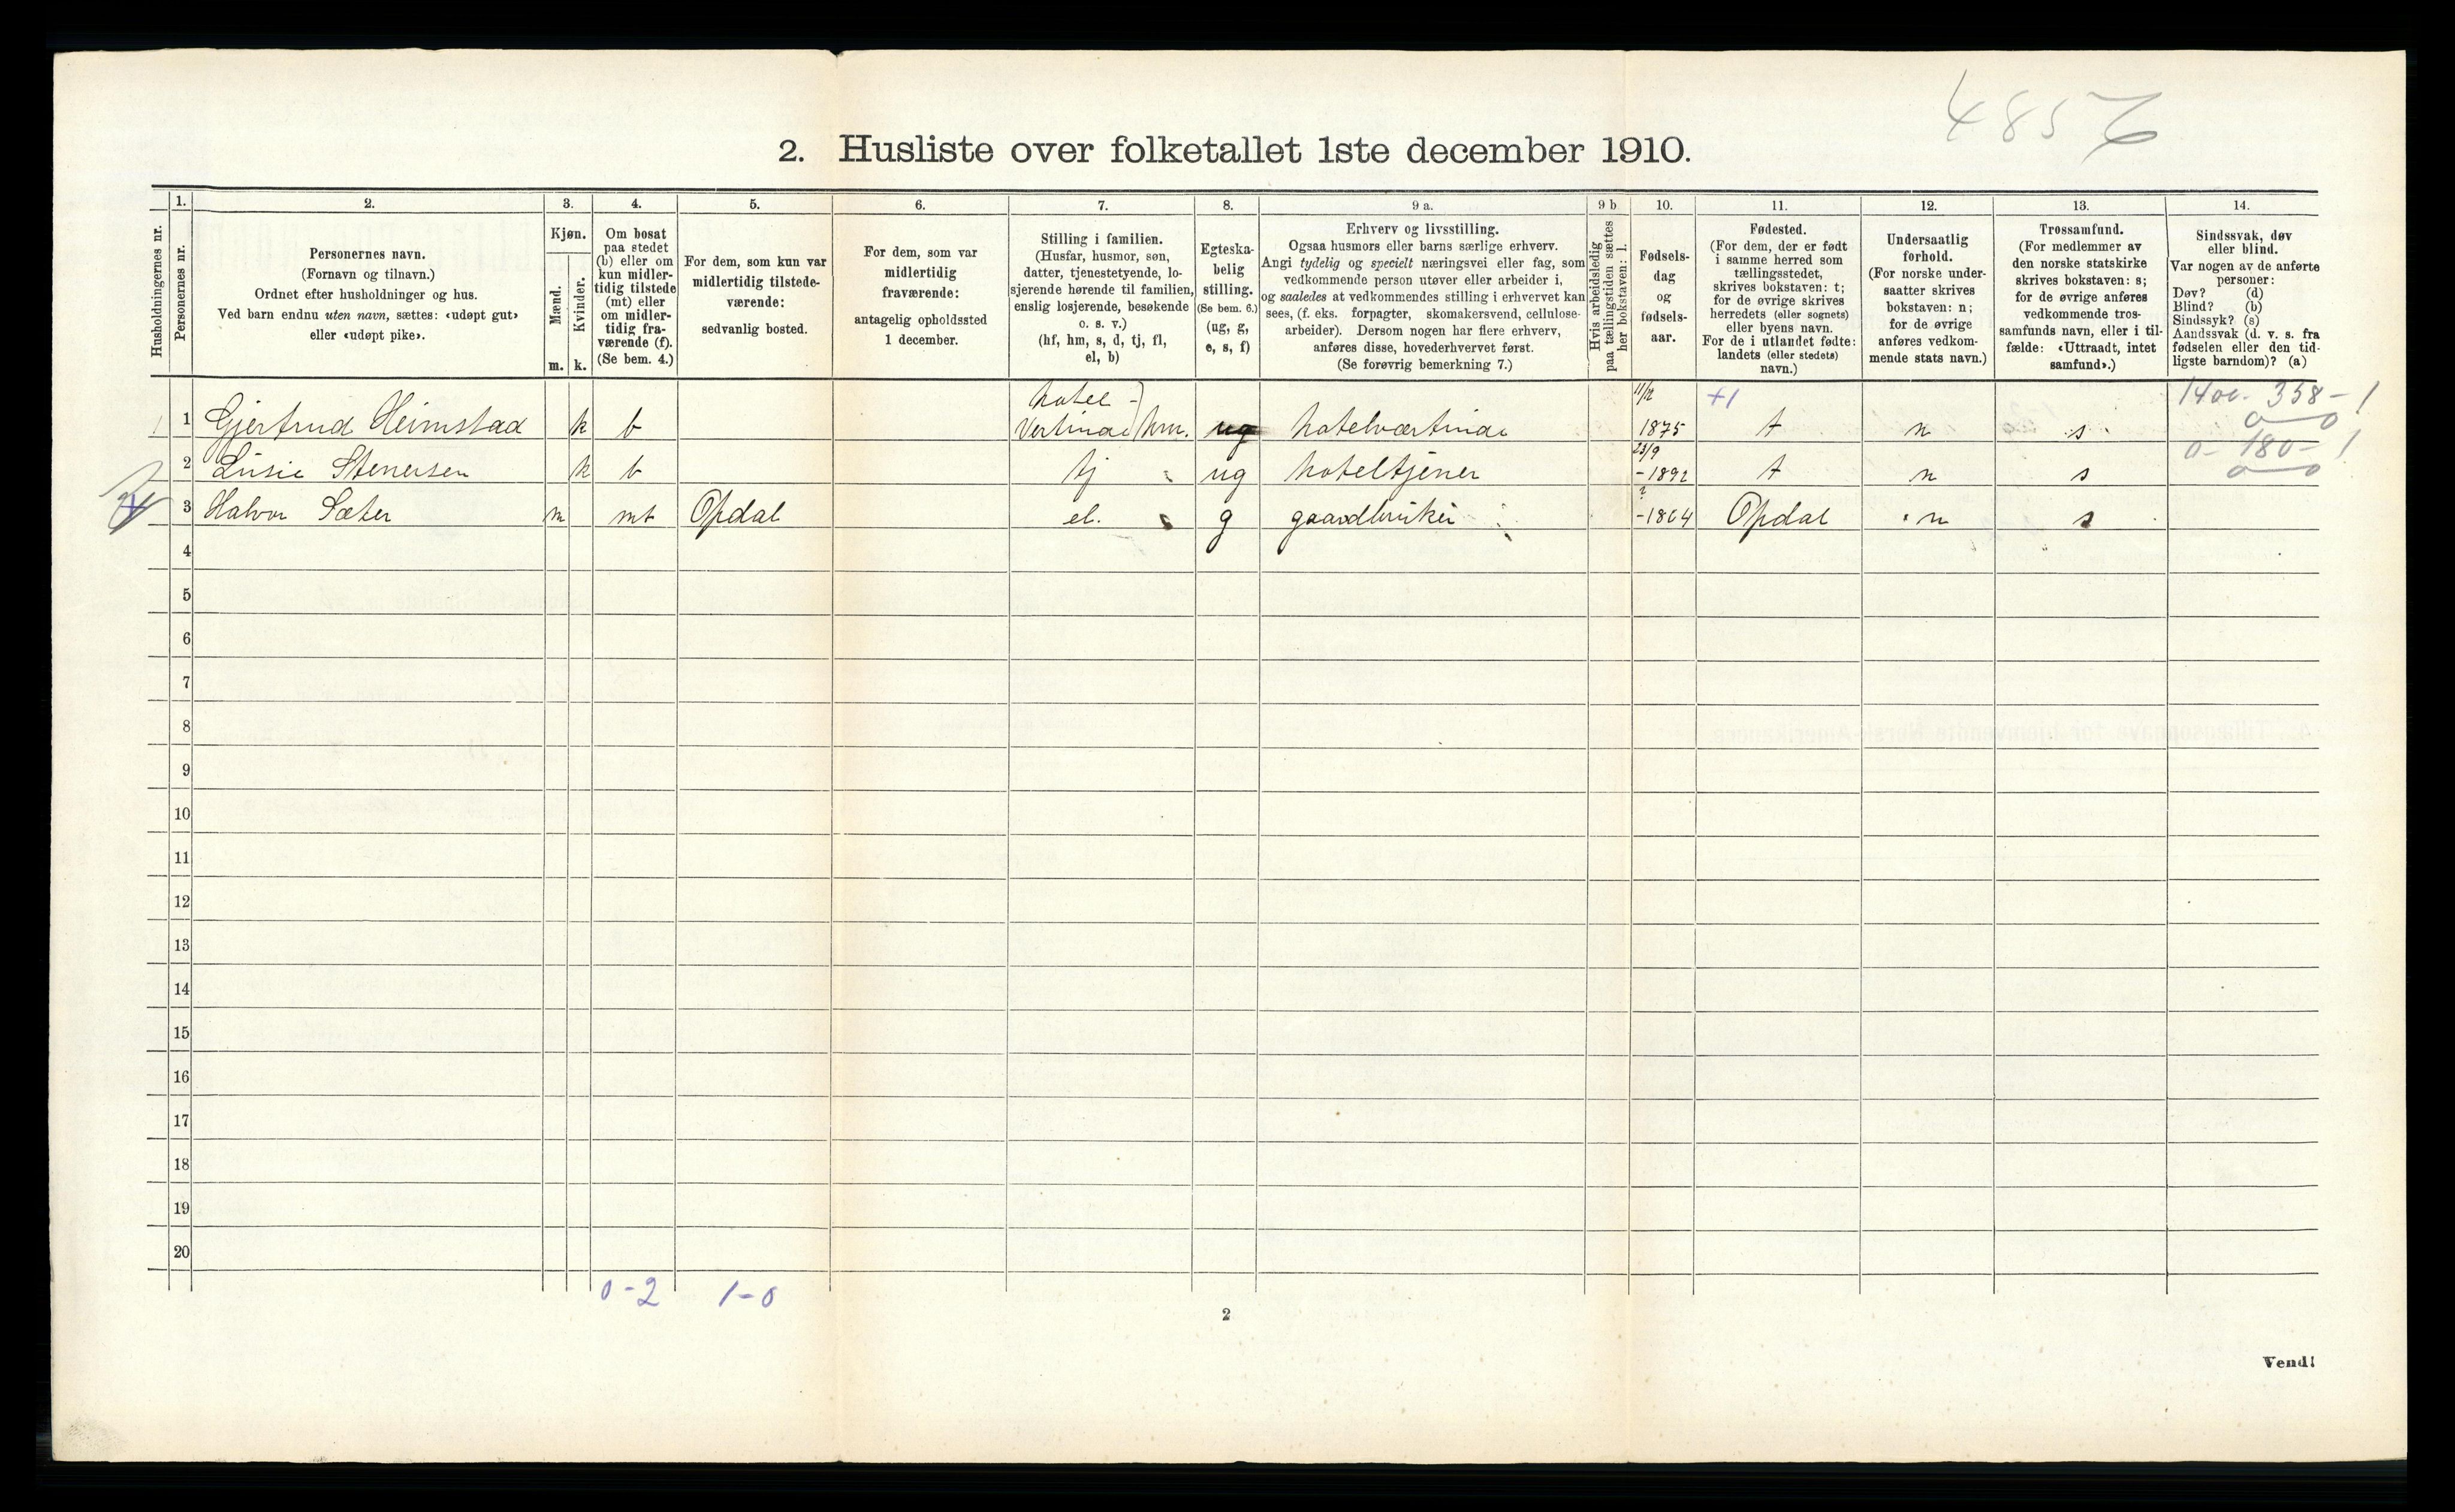 4856
2. Husliste over folketallet 1ste december 1910.
Husholdningernes nr.
1.
Personernes nr.
2.
Personernes navn.
(Fornavn og tilnavn.)
Ordnet efter husholdninger og hus.
Ved barn endnu uten navn, sættes: «udøpt gut»
eller «udøpt pike».
3.
Kjøn.
Mænd.
Kvinder.
m. k.
4.
Om bosat
paa stedet
(b) eller om
kun midler-
tidig tilstede
(mt) eller
om midler-
tidig fra-
værende (f).
(Se bem. 4.)
5.
For dem, som kun var
midlertidig tilstede-
værende:
sedvanlig bosted.
6.
For dem, som var
midlertidig
fraværende:
antagelig opholdssted
1 december.
7.
Stilling i familien.
(Husfar, husmor, søn,
datter, tjenestetyende, lo-
sjerende hørende til familien,
enslig losjerende, besøkende
o. s. v.)
(hf, hm, s, d, tj, fl,
el, b)
8.
Egteska-
belig
stilling.
(Se bem. 6.)
(ug, g,
e, s, f)
9 a.
Erhverv og livsstilling.
Ogsaa husmors eller barns særlige erhverv.
Angi tydelig og specielt næringsvei eller fag, som
vedkommende person utøver eller arbeider i,
og saaledes at vedkommendes stilling i erhvervet kan
sees, (f. eks. forpagter, skomakersvend, cellulose-
arbeider). Dersom nogen har flere erhverv,
anføres disse, hovederhvervet først.
(Se forøvrig bemerkning 7.)
9 b
Hvis arbeidsledig
paa tællingstiden sættes
her bokstaven: l.
10.
Fødsels-
dag
og
fødsels-
aar.
11.
Fødested.
(For dem, der er født
i samme herred som
tællingsstedet,
skrives bokstaven: t;
for de øvrige skrives
herredets (eller sognets)
eller byens navn.
For de i utlandet fødte:
landets (eller stedets)
navn.)
12.
Undersaatlig
forhold.
(For norske under-
saatter skrives
bokstaven: n;
for de øvrige
anføres vedkom-
mende stats navn.)
13.
Trossamfund.
(For medlemmer av
den norske statskirke
skrives bokstaven: s;
for de øvrige anføres
vedkommende tros-
samfunds navn, eller i til-
fælde: «Uttraadt, intet
samfund».)
14.
Sindssvak, døv
eller blind.
Var nogen av de anførte
personer:
Døv? (d)
Blind? (b)
Sindssyk? (s)
Aandssvak (d. v. s. fra
fødselen eller den tid-
ligste barndom)? (a)
hotel- 11/12 +1 1400- 358- 1
1 1 Gjertrud Heimstad k b Vertinde hm. ug hotelværtinde 1875 t n s 0 0
23/9 0- 180- 1
2 Lusie Stenersen k b tj ug hoteltjener -1892 t n s 0 0
?
3 Halvor Sæter m mt Opdal el. g gaardbruker -1864 Opdal n s
4
5
6
7
8
9
10
11
12
13
14
15
16
17
18
19
20
0-2 1-0
2
Vend!